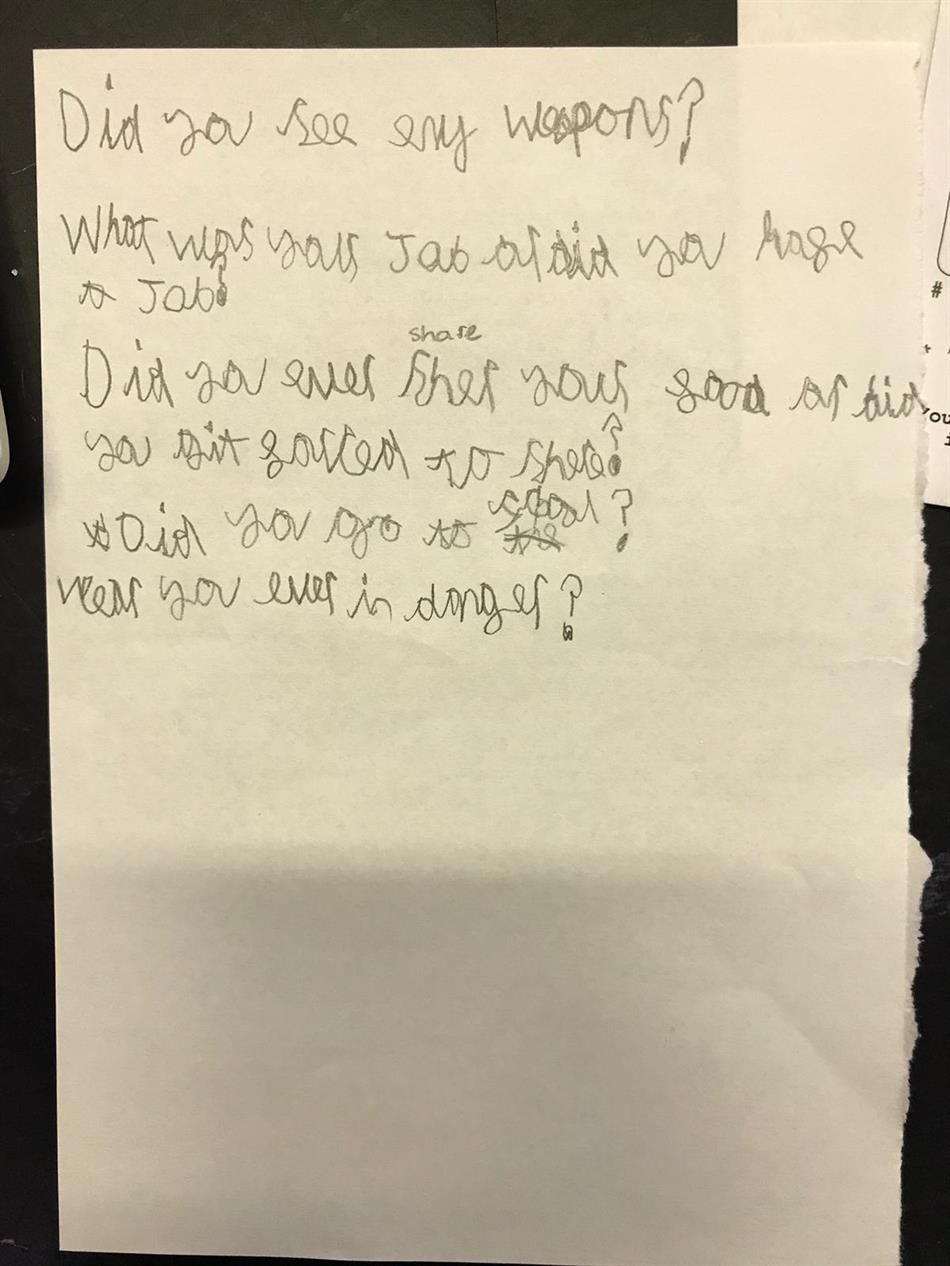 Did you see eny weapons?
What was your Job or did you have
a Job?
share
Did you ever sher your food or did
you git forced to shere?
Did you go to the scool?
wear you ever in danger?
#
You